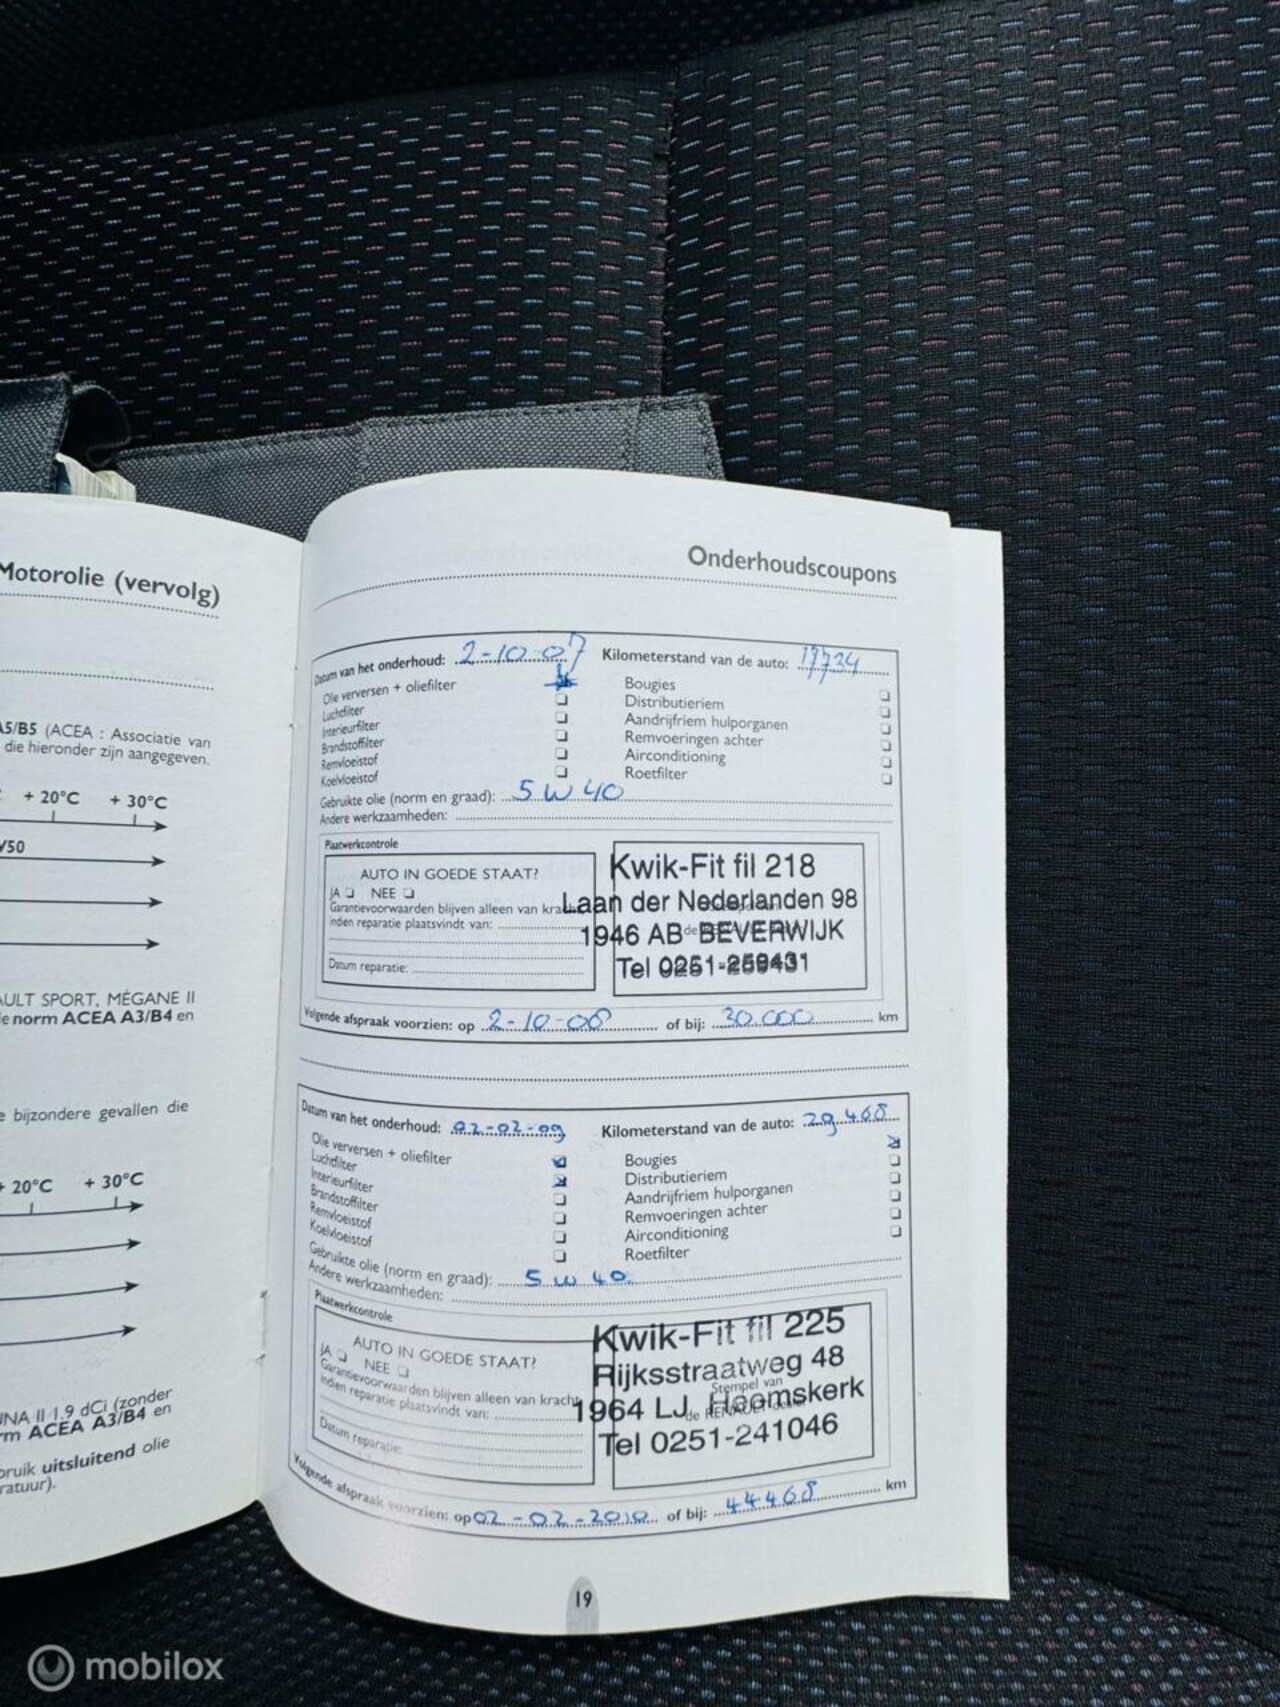 Motorolie (vervolg)
A5/B5 (ACEA : Associatie van
die hieronder zijn aangegeven.
+ 20°C + 30°C
/50
AULT SPORT, MÉGANE II
e norm ACEA A3/B4 en
e bijzondere gevallen die
+ 20°C + 30°C
UNA II 1.9 dCi (zonder
rm ACEA A3/B4 en
bruik uitsluitend olie
ratuur).
Onderhoudscoupons
Datum van het onderhoud: 2-10-07 Kilometerstand van de auto: 17724
Olie verversen + oliefilter Bougies
Luchtfilter Distributieriem
Interieurfilter Aandrijfriem hulporganen
Brandstoffilter Remvoeringen achter
Remvloeistof Airconditioning
Koelvloeistof Roetfilter
Gebruikte olie (norm en graad): 5 W 40
Andere werkzaamheden:
Plaatwerkcontrole
AUTO IN GOEDE STAAT?
JA NEE
Garantievoorwaarden blijven alleen van kracht
indien reparatie plaatsvindt van:
Datum reparatie:
Kwik-Fit fil 218
Laan der Nederlanden 98
1946 AB BEVERWIJK
Tel 0251-259431
Volgende afspraak voorzien: op 2-10-08 of bij: 30.000 km
Datum van het onderhoud: 02-02-09 Kilometerstand van de auto: 29468
Olie verversen + oliefilter
Luchtfilter Bougies
Interieurfilter Distributieriem
Brandstoffilter Aandrijfriem hulporganen
Remvloeistof Remvoeringen achter
Koelvloeistof Airconditioning
Roetfilter
Gebruikte olie (norm en graad): 5 W 40
Andere werkzaamheden:
Plaatwerkcontrole
AUTO IN GOEDE STAAT?
JA NEE
Garantievoorwaarden blijven alleen van kracht
indien reparatie plaatsvindt van:
Datum reparatie:
Kwik-Fit fil 225
Rijksstraatweg 48
Stempel van
1964 LJ Heemskerk
de RENAULT-dealer
Tel 0251-241046
Volgende afspraak voorzien: op 02-02-2010 of bij: 44468 km
19
mobilox